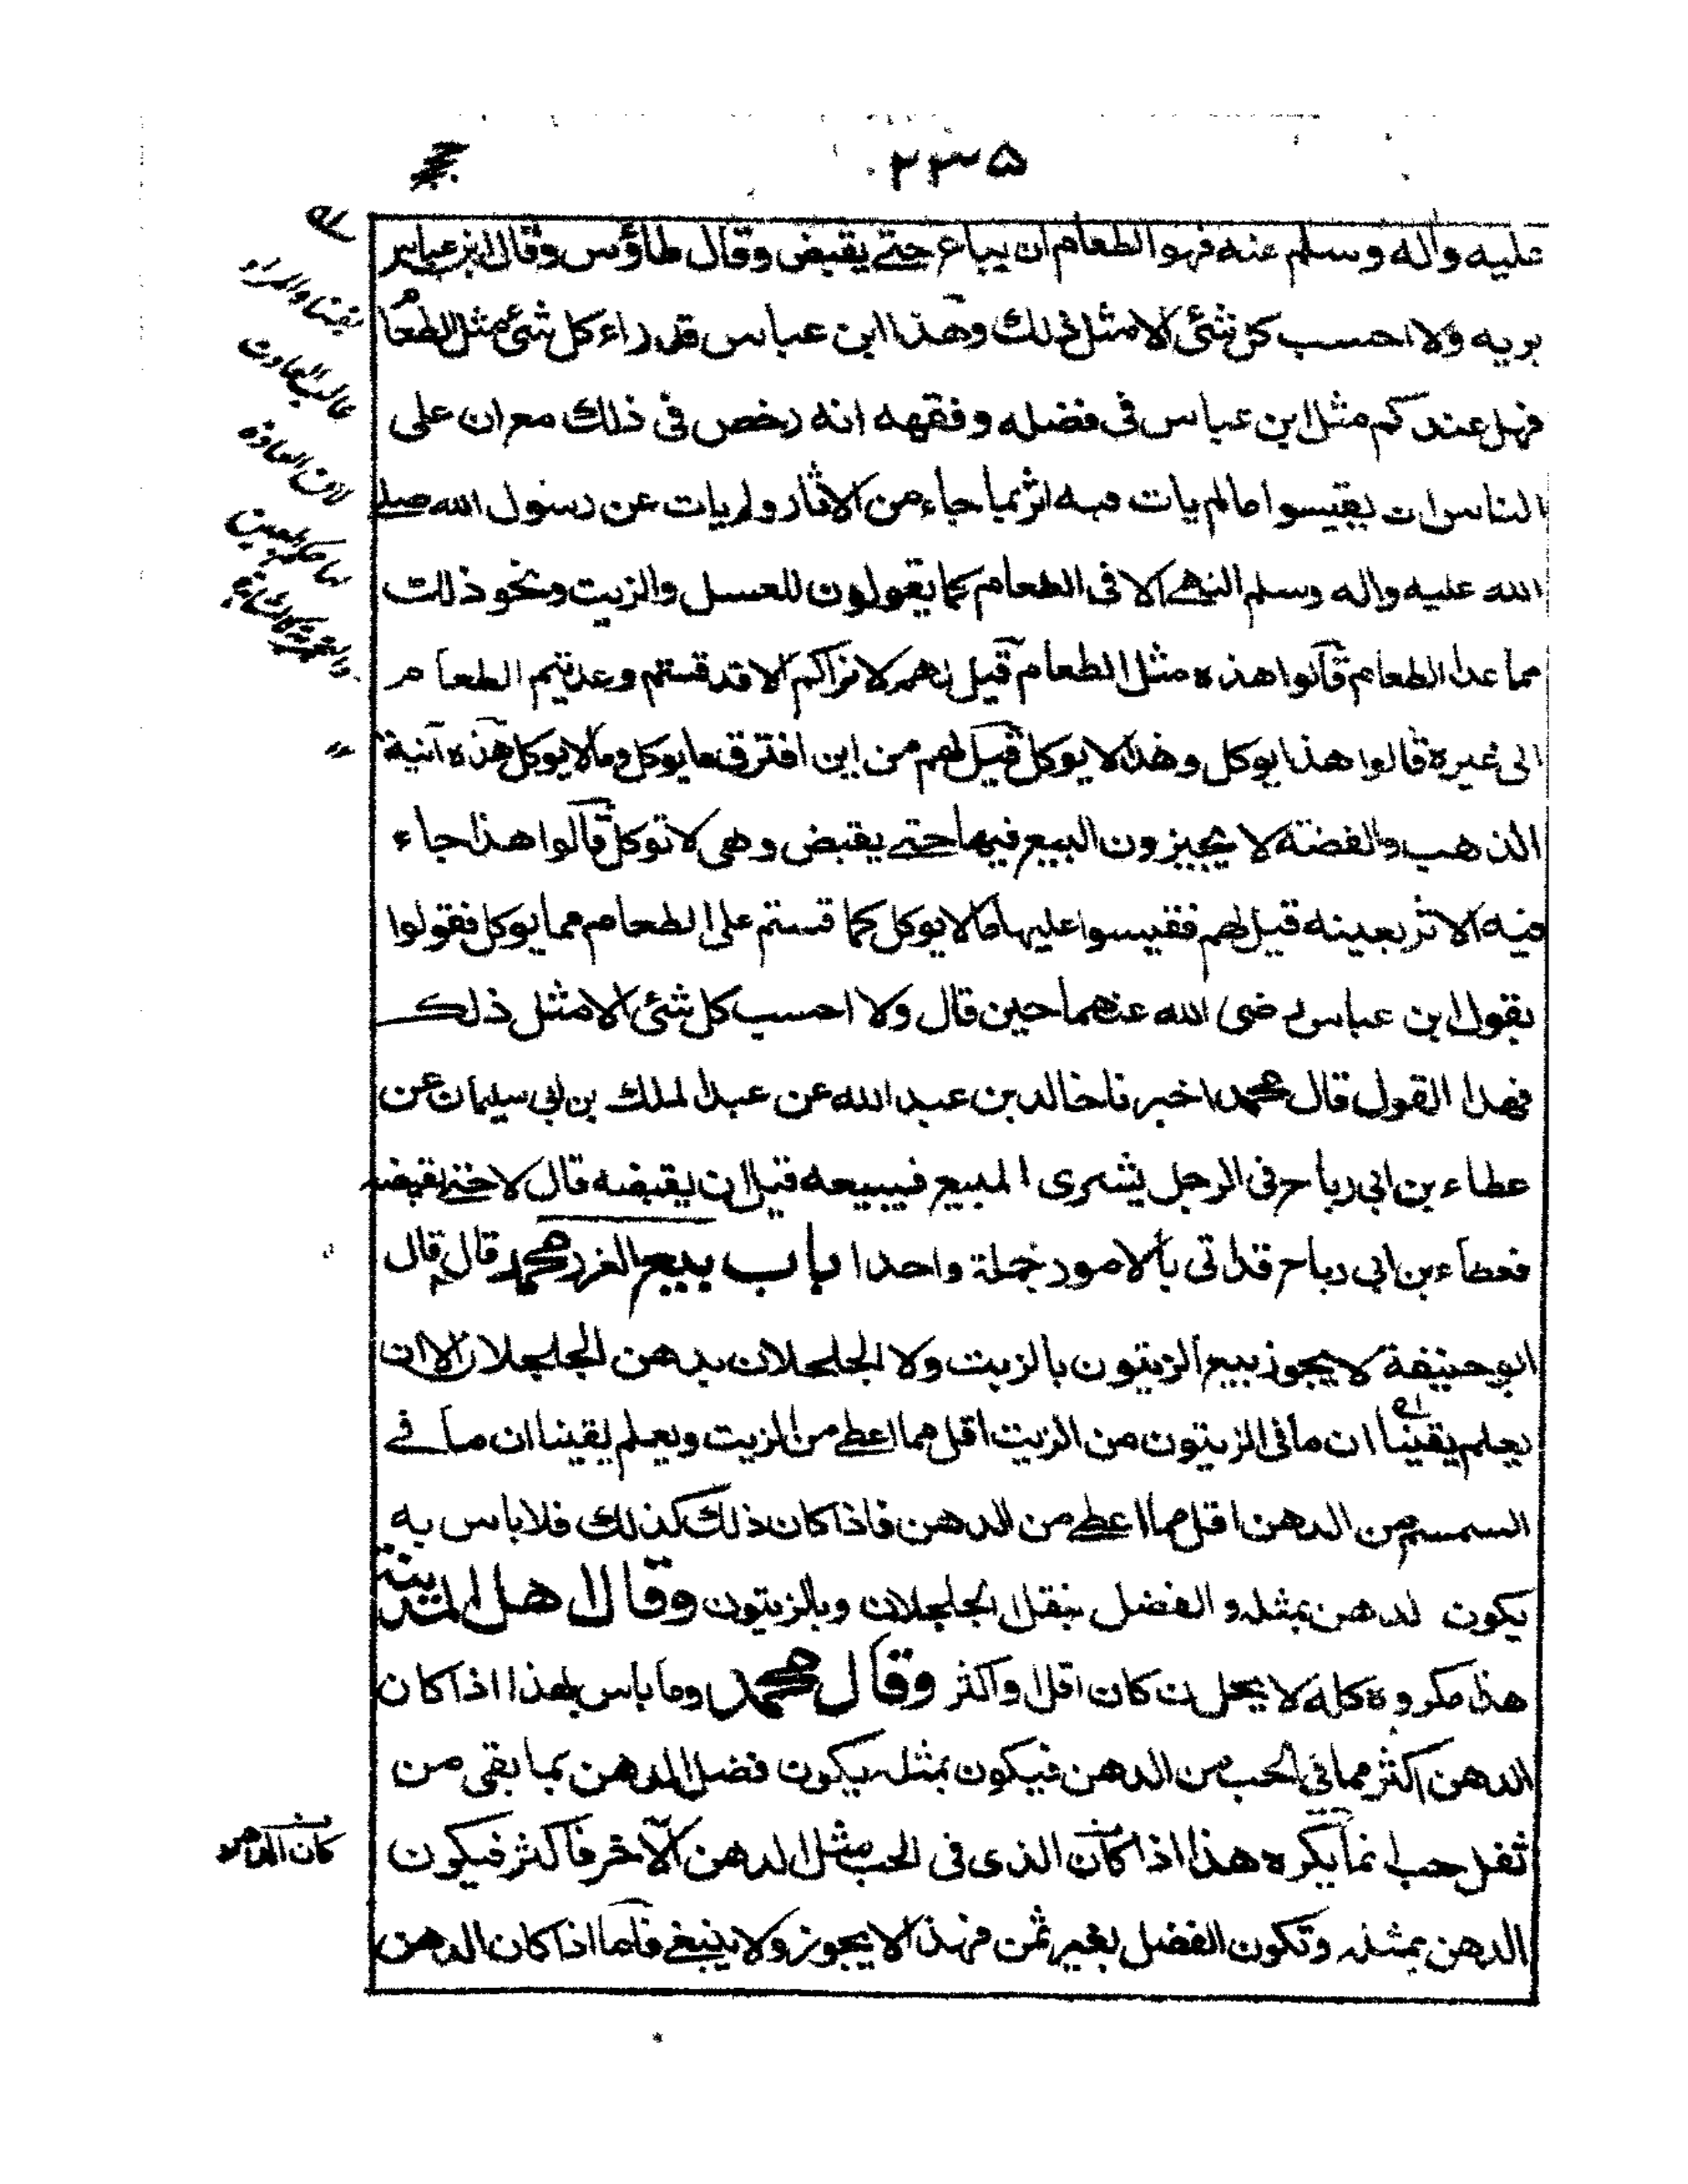 ٢٣٥
عليه واله وسلم عنه فهو الطعام ان يباع حتے يقبض وقال طاؤس وقال ابن عباس
بريه ولا احسب كل شئ الا مثل ذلك وهذا ابن عباس قد راء كل شئ مثل الطعام
فهل عندكم مثل ابن عباس فى فضله وفقهه انه رخص فى ذلك مع ان على
الناس ان يقيسوا مالم يات فيه اثر بما جاء من الاثار ولم يات عن رسول الله صلے
الله عليه واله وسلم النهے الا فى الطعام كما يقولون للعسل والزيت ونحو ذلك
مما عدا الطعام قالوا هذه مثل الطعام قيل لهم لا نراكم الا قد قستم وعديتم الطعام
الى غيره قالوا هذا يوكل وهذا لا يوكل قيل لهم من اين افترق ما يوكل وما لا يوكل هذه آنية
الذهب والفضة لا يجيزون البيع فيها حتے يقبض وهى لا توكل قالوا هذا جاء
فيه الاثر بعينه قيل لهم فقيسوا عليها ما لا يوكل كما قستم على الطعام مما يوكل فقولوا
بقول ابن عباس رضى الله عنهما حين قال ولا احسب كل شئ الا مثل ذلك
فهذا القول قال محمد اخبرنا خالد بن عبد الله عن عبد الملك بن ابى سليمان عن
عطاء بن ابى رباح فى الرجل يشترى المبيع فيبيعه قبل ان يقبضه قال لا حتے يقبضه
فعطاء بن ابى رباح قد اتى بالامور جملة واحدا باب بيع الغرر محمد قال قال
ابو حنيفة لا يجوز بيع الزيتون بالزيت ولا الجلجلان بدهن الجلجلان الا ان
يعلم يقينا ان ما فى الزيتون من الزيت اقل مما اعطے من الزيت ويعلم يقينا ان ما فے
السمسم من الدهن اقل مما اعطے من الدهن فاذا كان ذلك كذلك فلا باس به
يكون لدهن بمثله والفضل بثقل الجلجلان وبالزيتون وقال اهل المدينة
هذا مكروه كله لا يحل ان كان اقل او اكثر وقال محمد وما باس بهذا اذا كان
الدهن اكثر مما فى الحب من الدهن فيكون بمثله يكون فضل الدهن بما بقى من
ثفل حب انما يكره هذا اذا كان الذى فى الحب مثل الدهن الآخر فاكثر فيكون
كان الدهن
الدهن بمثله وتكون الفضل بغير ثمن فهذا لا يجوز ولا ينبغے فاما اذا كان الدهن